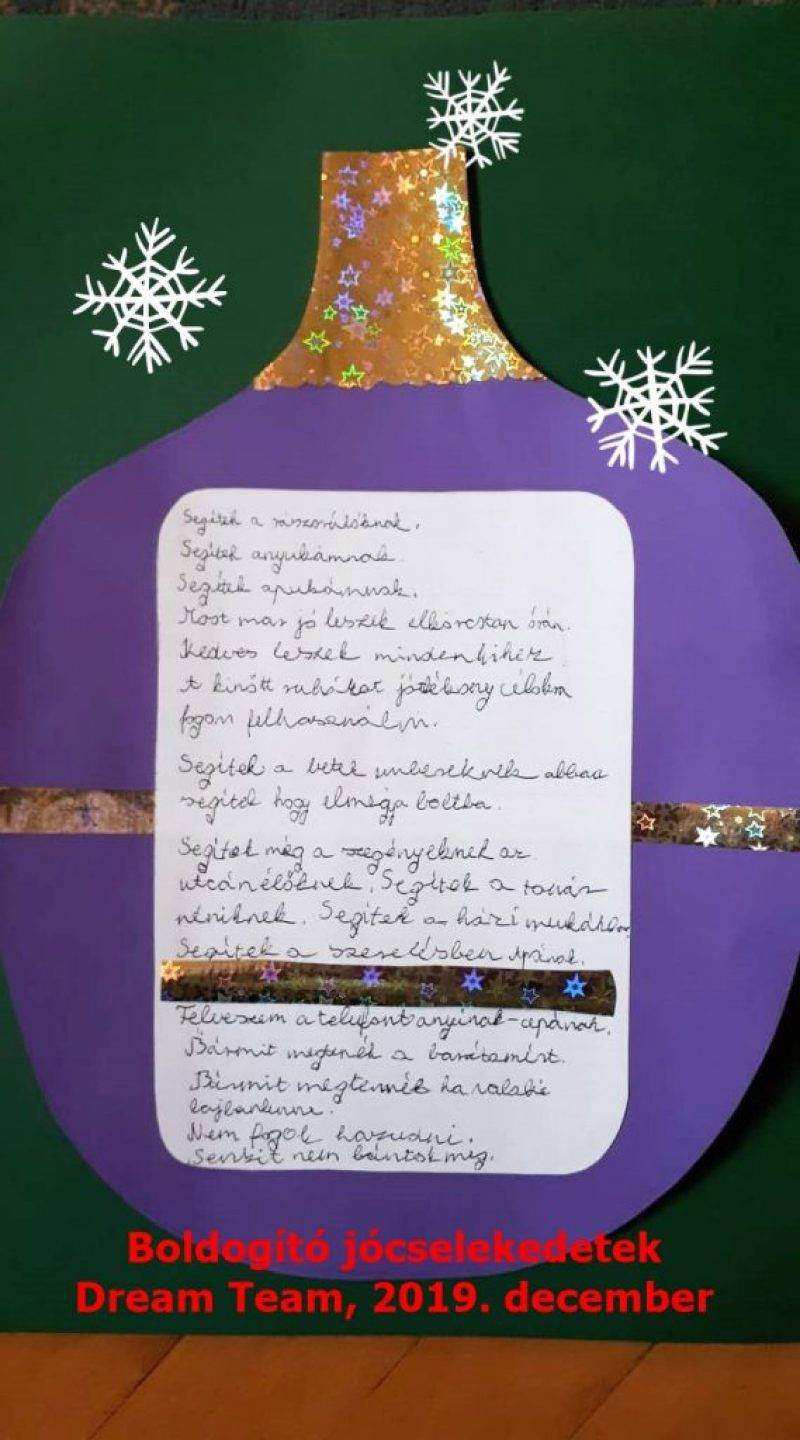 Segítek a rászorulóknak.
Segítek anyukámnak
Segítek apukámnak.
Most mar jó leszek órán.
Kedves leszek mindenkihez
A kinőtt ruhákat
fogom felhasználni.
Segítek a beteg embereknek abban
segítek hogy boltba.
Segítek még a szegényeknek az
utcánélőknek. Segítek a tanár
néniknek. Segítek a házi
Segítek a szerelésben Apának.
Felveszem a telefont anyának-apának.
Bármit megtenék a barátamért.
Bármit megtennék ha valaki
Nem fogok hazudni.
Senkit nem bántok meg.
Boldogító jócselekedetek
Dream Team, 2019. december